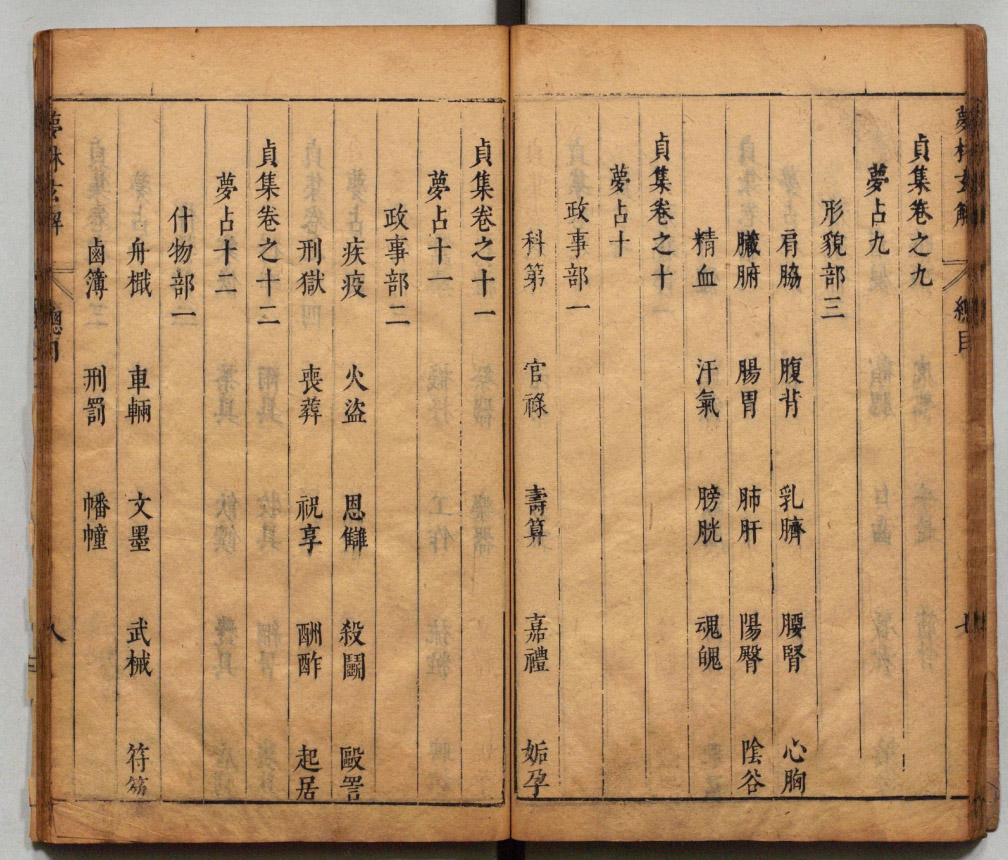 夢林玄解 總目 七
貞集卷之九
夢占九
形貌部三
肩脇 腹背 乳臍 腰腎 心胸
臟腑 腸胃 肺肝 陽臀 陰谷
精血 汗氣 膀胱 魂魄
貞集卷之十
夢占十
政事部一
科第 官祿 壽算 嘉禮 姤孕
貞集卷之十一
夢占十一
政事部二
疾疫 火盜 恩讎 殺鬬 毆詈
刑獄 喪葬 祝享 酬酢 起居
貞集卷之十二
夢占十二
什物部一
舟檝 車輛 文墨 武械 符
鹵簿 刑罰 幡幢
夢林玄解 總目 八